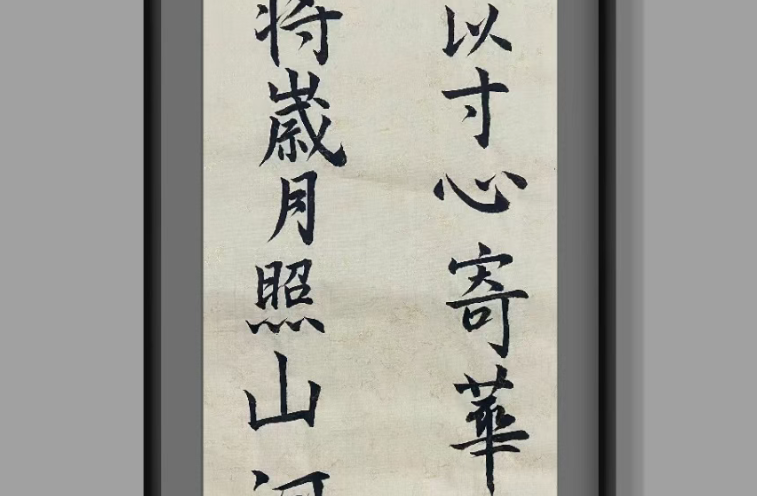 以寸心寄華
将歲月照山河